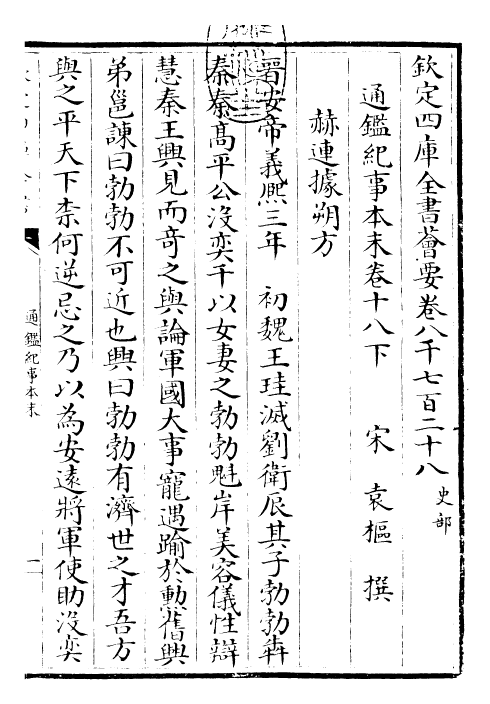 欽定四庫全書薈要卷八千七百二十八 史部
通鑑紀事本末卷十八下 宋 袁樞 撰
赫連據朔方
晉安帝義熙三年 初魏王珪滅劉衛辰其子勃勃犇
秦秦髙平公沒奕干以女妻之勃勃魁岸美容儀性辯
慧秦王興見而竒之與論軍國大事寵遇踰於勲舊興
弟邕諫曰勃勃不可近也興曰勃勃有濟世之才吾方
與之平天下柰何逆忌之乃以為安遠將軍使助沒奕
通鑑紀事本末
一